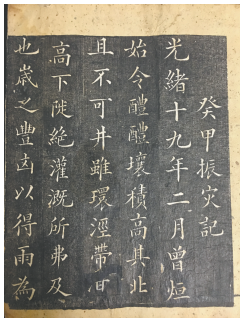 癸甲振灾記
光緒十九年二月曾烜
始令醴醴壤積高其北
且不可井雖環涇帶甘
高下陡絕灌溉所弗及
也歲之豐凶以得雨為